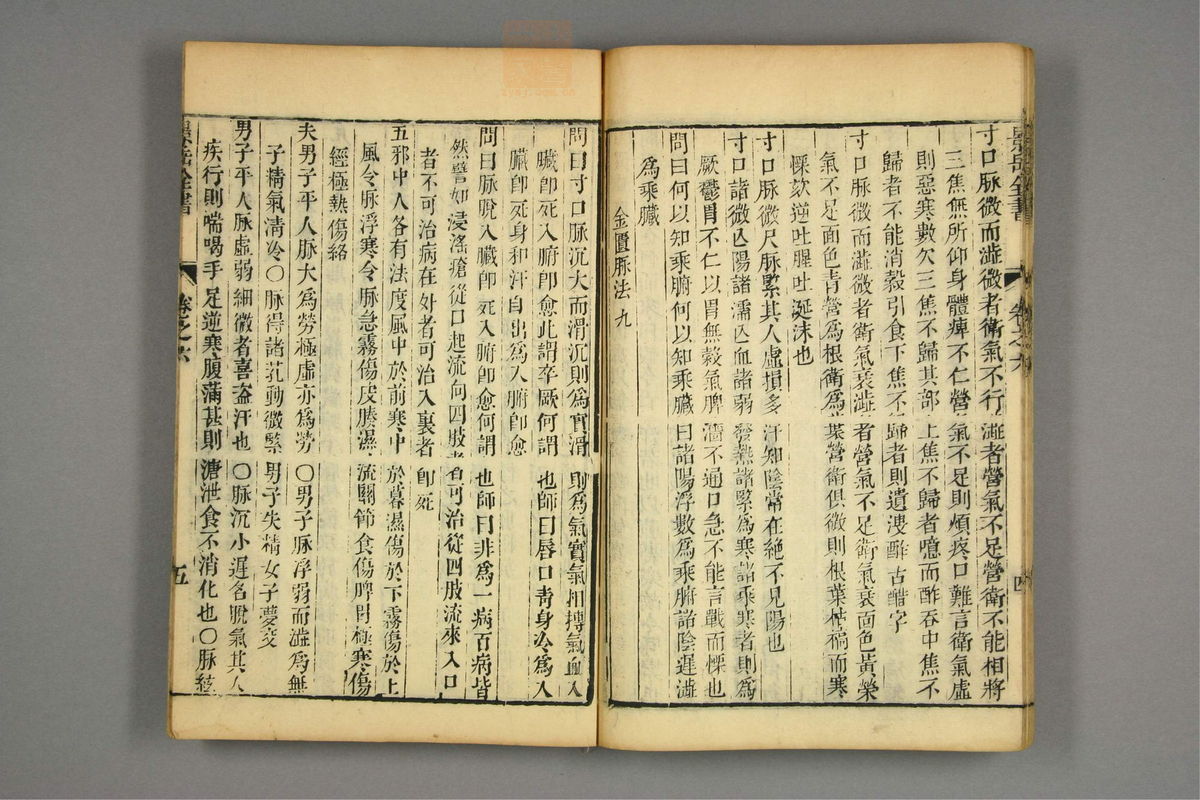 寸口脉微而澁微者衛氣不行澁者營氣不足營衛不能相將
三焦無所仰身體痺不仁營氣不足則煩疼口難言衛氣虛
則惡寒數欠三焦不歸其部上焦不歸者噫而酢吞中焦不
歸者不能消穀引食下焦不歸者則遺溲酢古醋字
寸口脉微而澁微者衛氣衰澁者營氣不足衛氣衰面色黃榮
氣不足面色青營爲根衛爲葉營衛俱微則根葉枯槁而寒
慄欬逆吐腥吐涎沫也
寸口脉微尺脉緊其人虛損多汗知陰常在絶不見陽也
寸口諸微亾陽諸濡亾血諸弱發熱諸緊爲寒諸乘寒者則爲
厥鬱冒不仁以胃無穀氣脾濇不通口急不能言戰而慄也
問曰何以知乘腑何以知乘臟曰諸陽浮數爲乘腑諸陰遲澁
爲乘臟
金匱脉法 九
景岳全書
卷之六
四
問曰寸口脉沉大而滑沉則爲實滑則爲氣實氣相搏氣血入
臟卽死入腑卽愈此謂卒厥何謂也師曰唇口靑身冷爲入
臟卽死身和汗自出爲入腑卽愈
問曰脉脫入臟卽死入腑卽愈何謂也師曰非爲一病百病皆
然譬如浸滛瘡從口起流向四肢者可治從四肢流來入口
者不可治病在外者可治入裏者卽死
五邪中人各有法度風中於前寒中於暮濕傷於下霧傷於上
風令脉浮寒令脉急霧傷皮腠濕流關節食傷脾胃極寒傷
經極熱傷絡
夫男子平人脉大爲勞極虛亦爲勞〇男子脉浮弱而澁爲無
子精氣清冷〇脉得諸芤動微緊男子失精女子夢交
男子平人脉虛弱細微者喜盜汗也〇脉沉小遲名脫氣其人
疾行則喘喝手足逆寒腹滿甚則溏泄食不消化也〇脉絃
景岳全書
卷之六
五